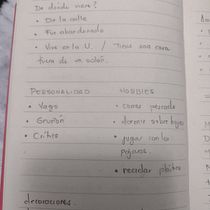 De donde viene?
• De la calle
• Fue abandonado
• Vive en la U. / Tiene una casa
fuera de un salón.
PERSONALIDAD HOBBIES
• Vago • comer pescado
• Gruñón • dormir sobre hojas
• Crítico • jugar con los
pájaros.
• reciclar plástico
decoraciones.